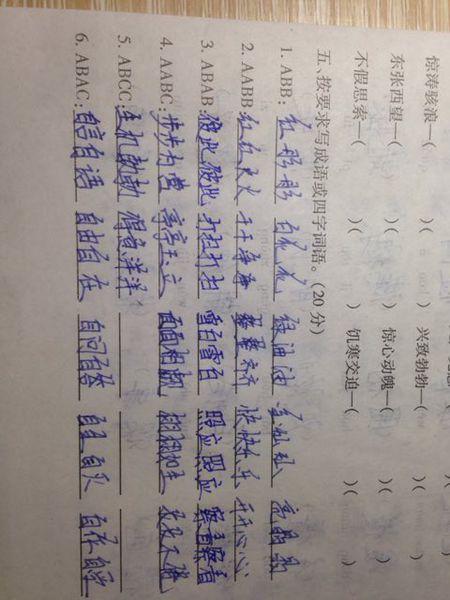 惊涛骇浪—( )( ) 兴致勃勃—( )( )
东张西望—( )( ) 惊心动魄—( )( )
不假思索—( )( ) 饥寒交迫—( )( )
五、按要求写成语或四字词语。(20分)
1. ABB: 红彤彤 白花花 绿油油 金灿灿
2. AABB: 红红火火 干干净净 整整齐齐 快快乐乐 开开心心
3. ABAB: 彼此彼此 打扫打扫 雪白雪白 照应照应 察看察看
4. AABC: 步步为营 亭亭玉立 面面相觑 栩栩如生
5. ABCC: 生机勃勃 得意洋洋
6. ABAC: 自言自语 自由自在 自问自答 自生自灭 自作自受